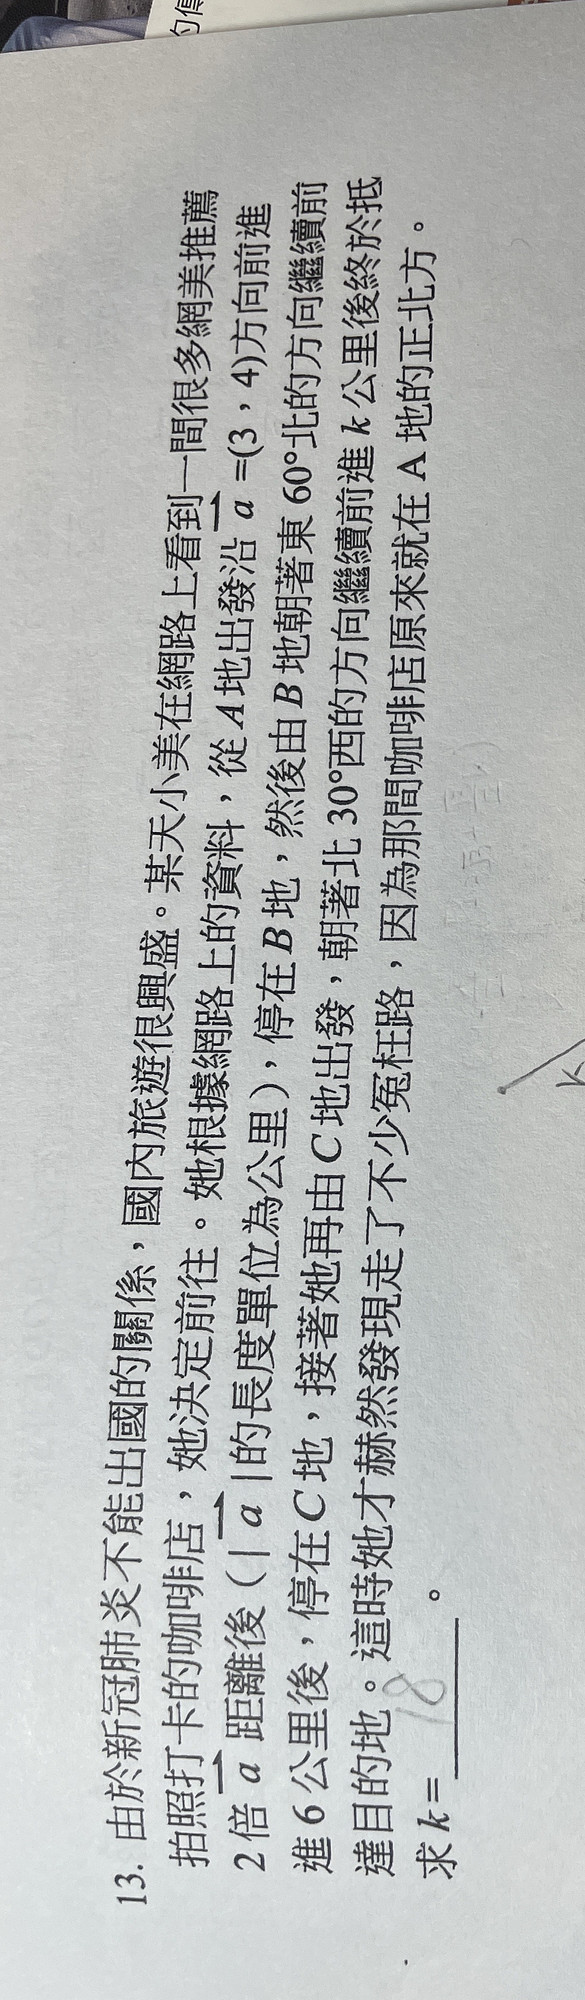 的傳
13. 由於新冠肺炎不能出國的關係，國內旅遊很興盛。某天小美在網路上看到一間很多網美推薦
拍照打卡的咖啡店，她決定前往。她根據網路上的資料，從 A 地出發沿 a⃗ =(3，4)方向前進
2 倍 a⃗ 距離後（| a⃗ |的長度單位為公里），停在 B 地，然後由 B 地朝著東 60°北的方向繼續前
進 6 公里後，停在 C 地，接著她再由 C 地出發，朝著北 30°西的方向繼續前進 k 公里後終於抵
達目的地。這時她才赫然發現走了不少冤枉路，因為那間咖啡店原來就在 A 地的正北方。
求 k = 18 。
k